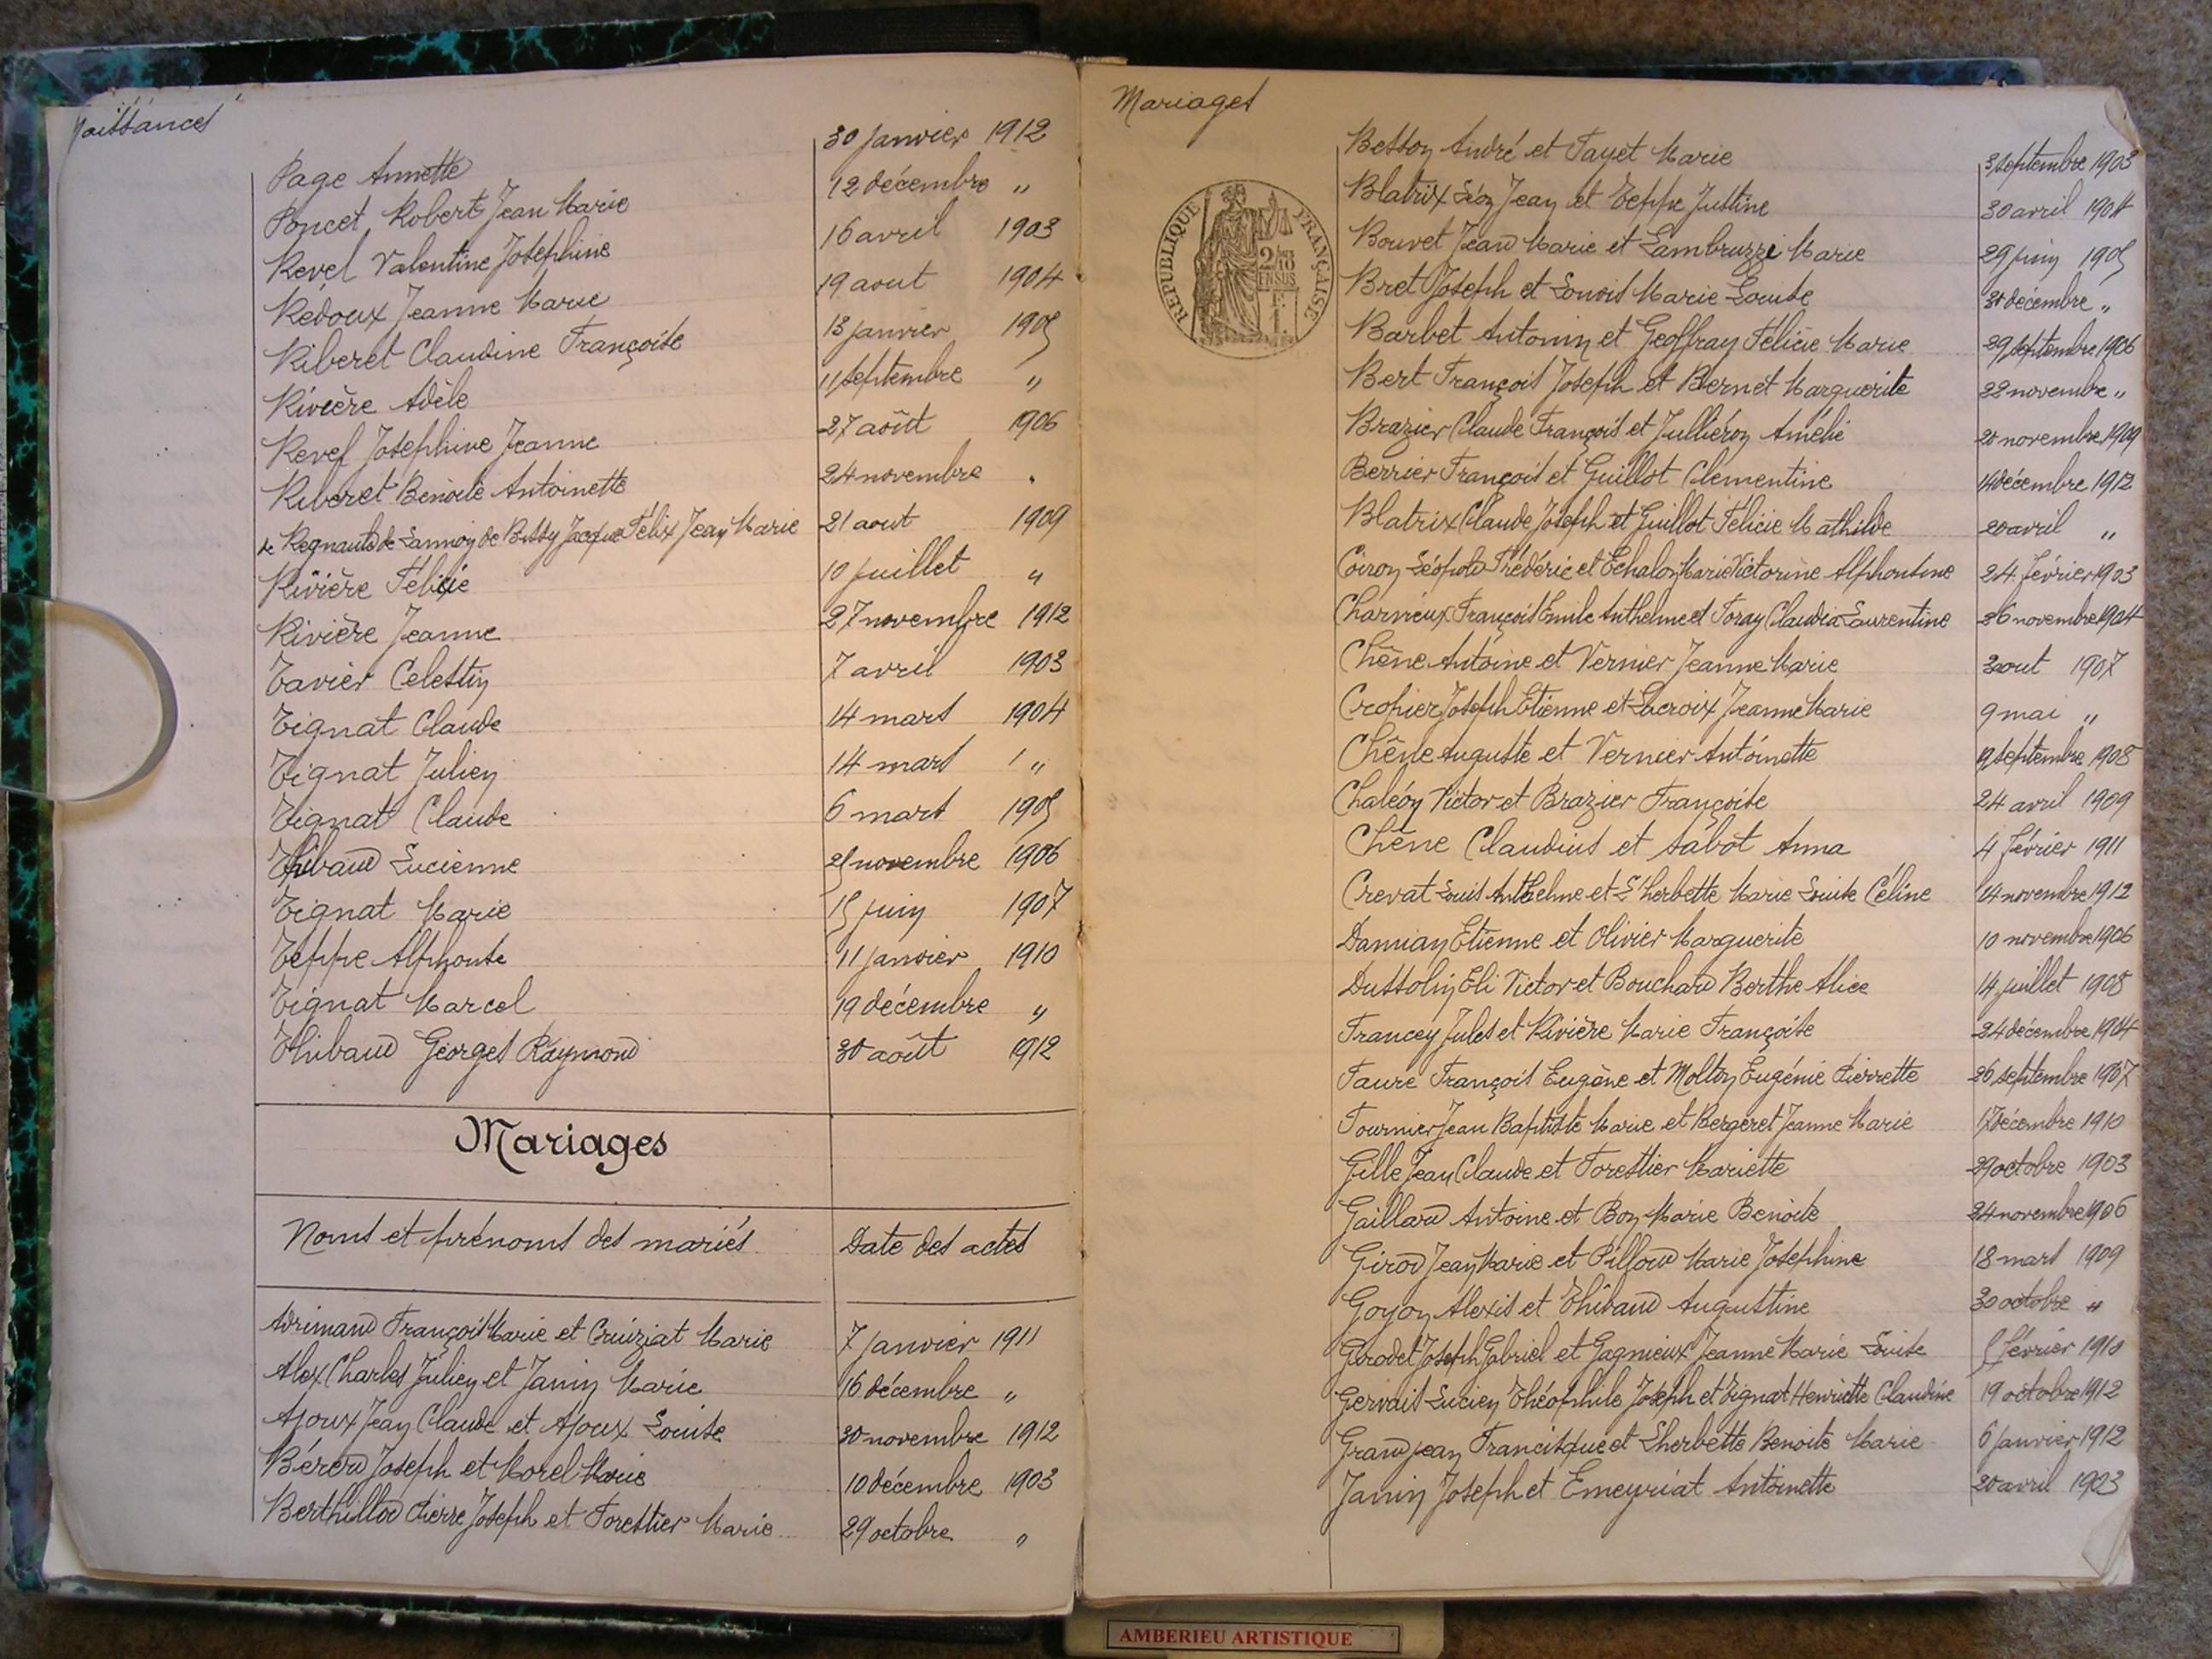 Naissances
Page Annette 30 janvier 1912
Poncet Robert Jean Marie 12 décembre "
Revel Valentine Josephine 16 avril 1903
Redoux Jeanne Marie 19 aout 1904
Riberet Claudine Françoise 13 janvier 1905
Rivière Adèle 11 septembre "
Revel Josephine Jeanne 27 août 1906
Riberet Benoite Antoinette 24 novembre "
de Regnauld de Lannoy de Bissy Jacque Félix Jean Marie 21 aout 1909
Rivière Félicie 10 juillet "
Rivière Jeanne 27 novembre 1912
Tavier Celestin 7 avril 1903
Tignat Claude 14 mars 1904
Tignat Julien 14 mars "
Tignat Claude 6 mars 1905
Thibaud Lucienne 25 novembre 1906
Tignat Marie 15 juin 1907
Teppe Alphonse 11 janvier 1910
Tignat Marcel 19 décembre "
Thibaud Georges Raymond 30 août 1912
Mariages
Noms et prénoms des mariés Date des actes
Adrimand François Marie et Cruiziat Marie 7 janvier 1911
Alex Charles Julien et Janin Marie 16 décembre "
Ajoux Jean Claude et Ajoux Louise 30 novembre 1912
Bérerd Joseph et Morel Marie 10 décembre 1903
Berthillod Pierre Joseph et Forestier Marie 29 octobre "
Mariages
REPUBLIQUE FRANÇAISE
2/10 EN SUS
1 F.
Besson André et Fayet Marie 3 septembre 1903
Blatrix Léon Jean et Teppe Justine 30 avril 1904
Bouvet Jean Marie et Lambruzzi Marie 29 juin 1905
Bret Joseph et Marie Louise 30 décembre "
Barbet Antonin et Geoffray Félicie Marie 29 septembre 1906
Bert François Joseph et Bernet Marguerite 22 novembre "
Brazier Claude François et Julliéron Amélie 20 novembre 1909
Berrier François et Guillot Clémentine 14 décembre 1912
Blatrix Claude Joseph et Guillot Félicie Mathilde 20 avril "
Coiron Léopold Frédéric et Echalon Marie Victorine Alphonsine 24 février 1903
Charnieux François Emile Anthelme et Foray Claudia Laurentine 26 novembre 1904
Chêne Antoine et Vernier Jeanne Marie 3 aout 1907
Cropier Joseph Etienne et Lacroix Jeanne Marie 9 mai "
Chêne Auguste et Vernier Antoinette 19 septembre 1908
Chaléon Victor et Brazier Françoise 24 avril 1909
Chêne Claudius et Sabot Anna 4 février 1911
Crevat Louis Anthelme et L'herbette Marie Louise Céline 14 novembre 1912
Damian Etienne et Olivier Marguerite 10 novembre 1906
Dussolin Eli Victor et Bouchard Berthe Alice 14 juillet 1908
Francey Jules et Rivière Marie Françoise 24 décembre 1904
Faure François Eugène et Molton Eugénie Pierrette 26 septembre 1907
Fournier Jean Baptiste Marie et Bergeret Jeanne Marie 17 décembre 1910
Gille Jean Claude et Forestier Mariette 29 octobre 1903
Gaillard Antoine et Bon Marie Benoite 24 novembre 1906
Girod Jean Marie et Pilloud Marie Josephine 18 mars 1909
Goyon Alexis et Thibaud Augustine 30 octobre "
Girodet Joseph Gabriel et Gagnieux Jeanne Marie Louise 5 février 1910
Gervais Lucien Théophile Joseph et Tignat Henriette Claudine 19 octobre 1912
Grandjean Francisque et Lherbette Benoite Marie 6 janvier 1912
Janin Joseph et Emeyriat Antoinette 20 avril 1903
AMBERIEU ARTISTIQUE